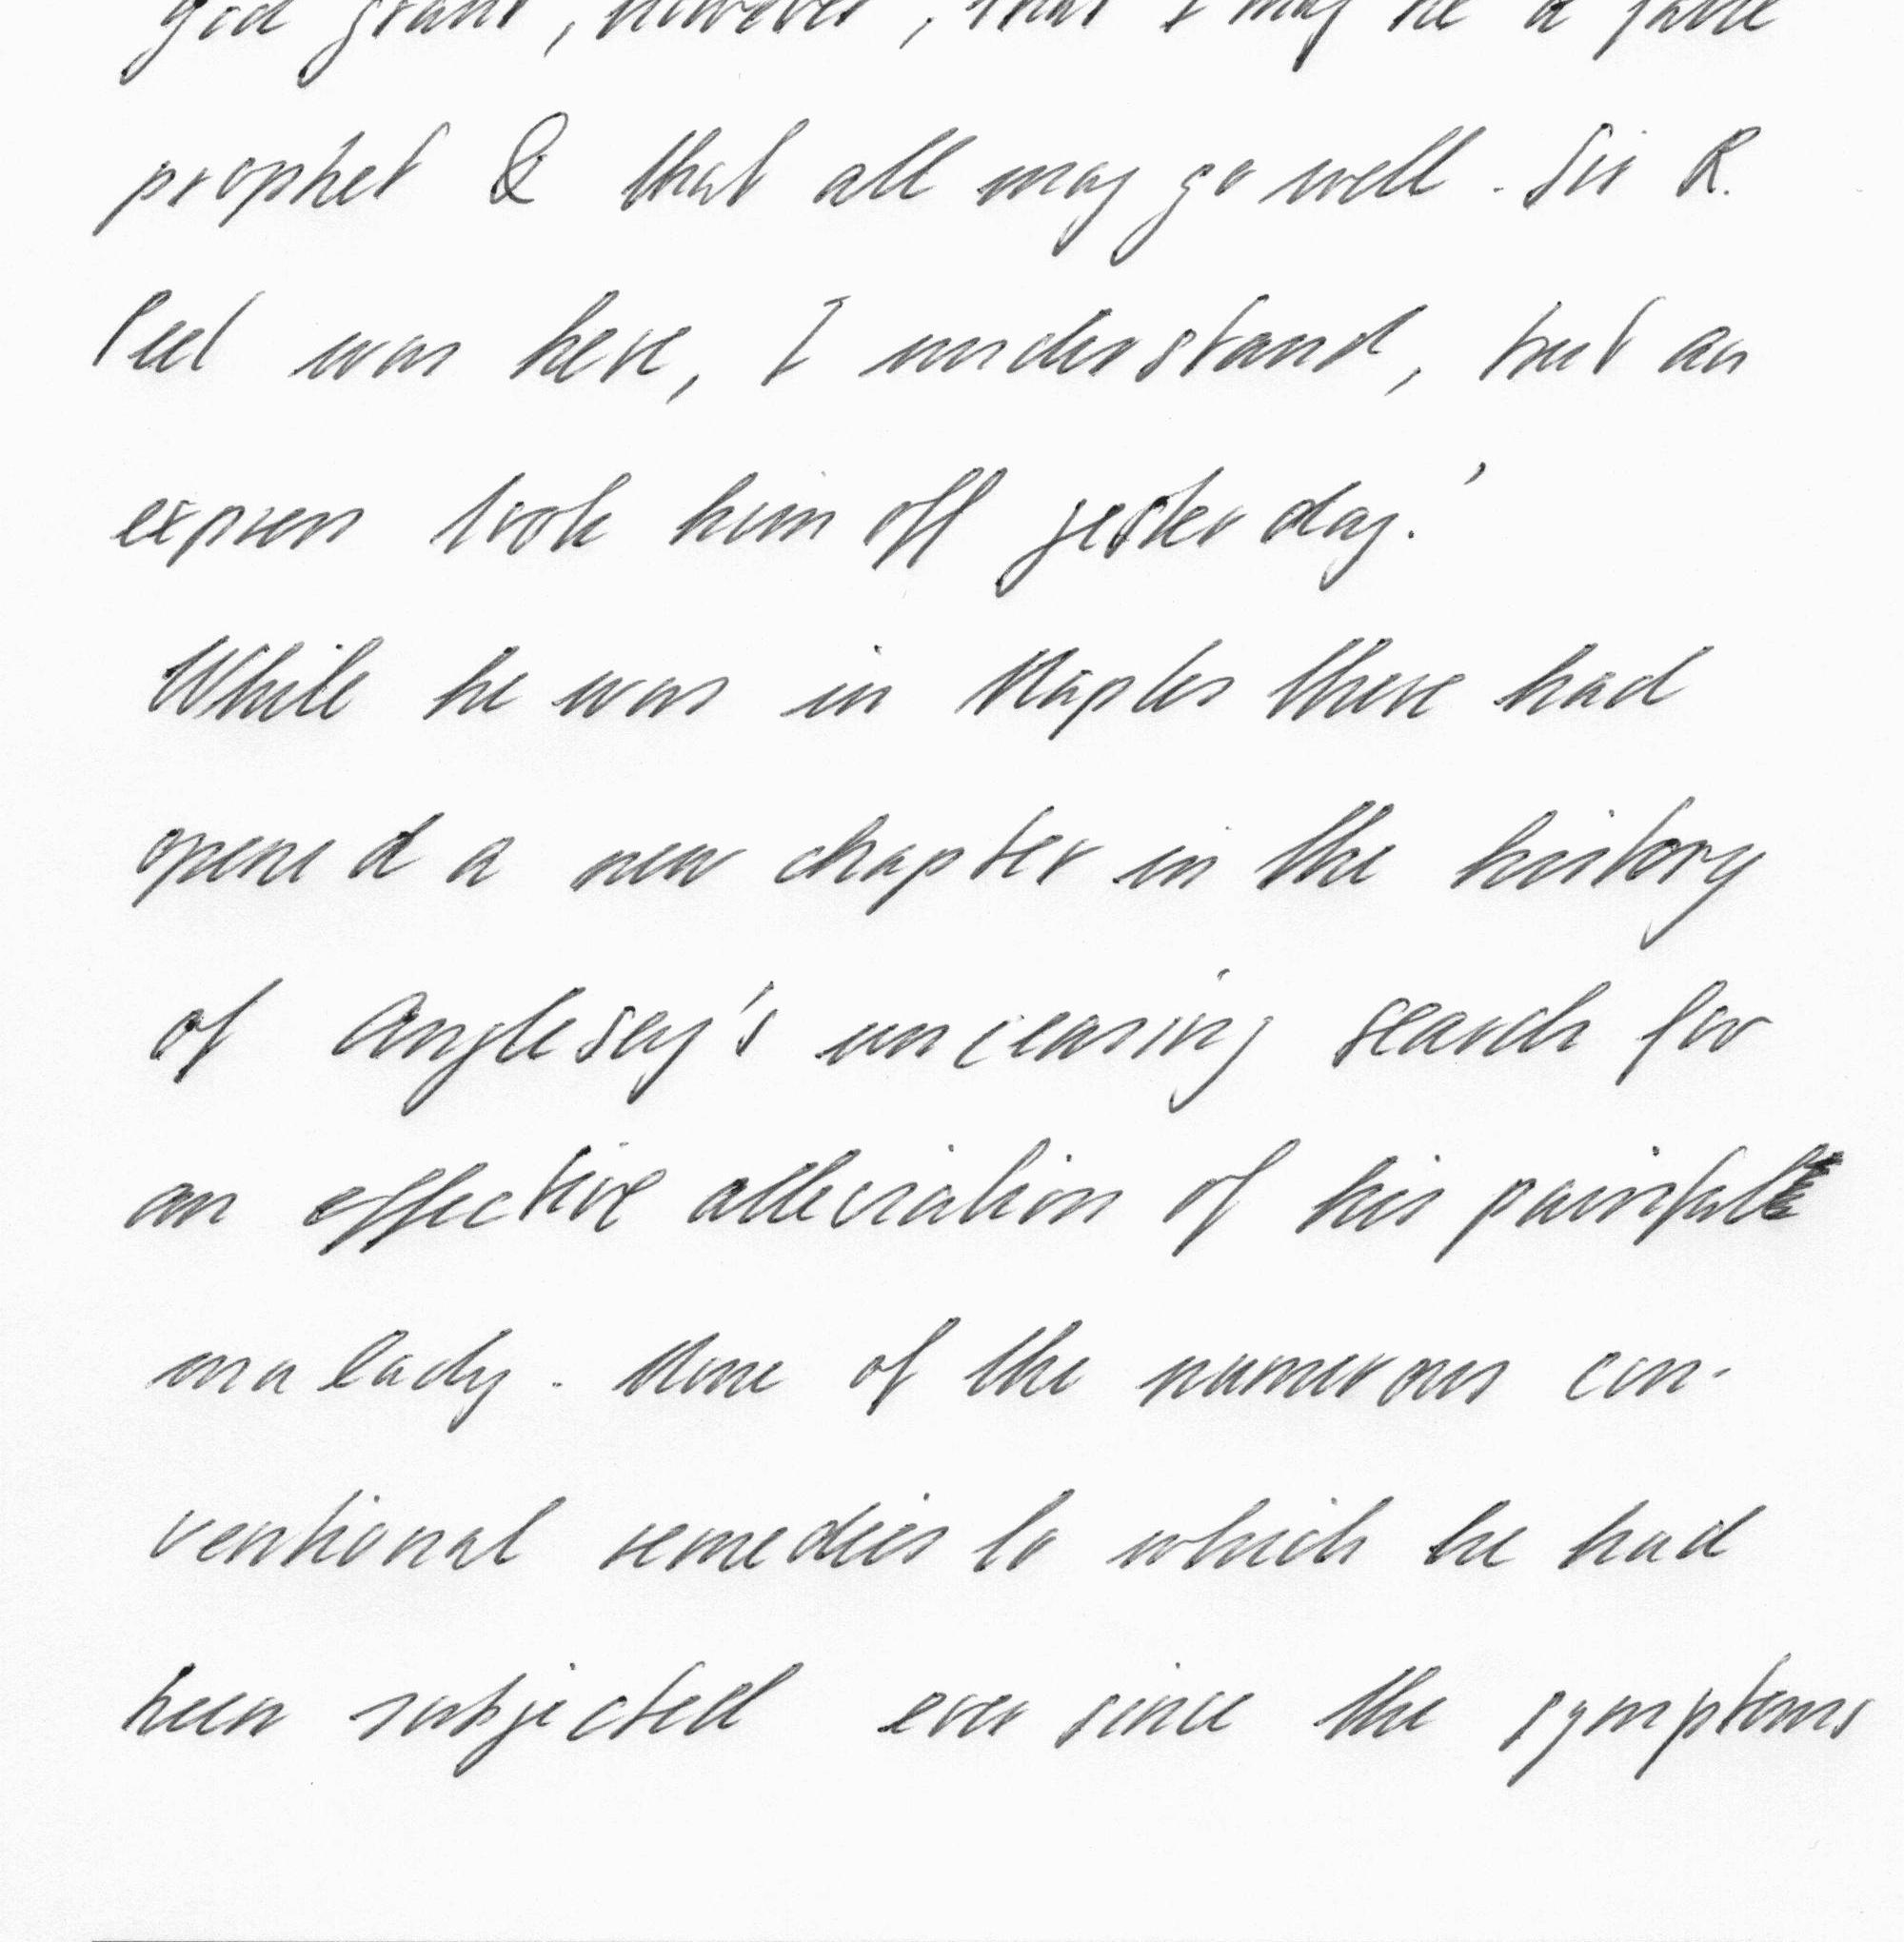 god grant, however, that I may be a false
prophet & that all may go well. Sir R.
Peel was here, I understand, but an
express took him off yesterday.'
While he was in Naples there had
opened a new chapter in the history
of Anglesey's unceasing search for
an effective alleviation of his painful
malady. None of the numerous con-
ventional remedies to which he had
been subjected ever since the symptoms